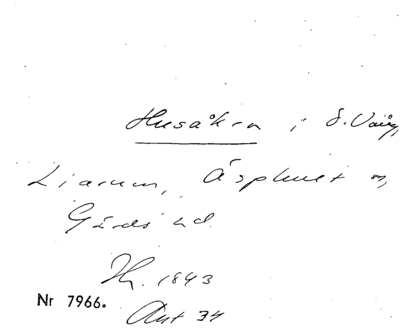 Husåkra i S. Väng,
Liarum, Äsphult sn,
Gärds hd.
Th. 1843
Nr 7966.
Ant 34